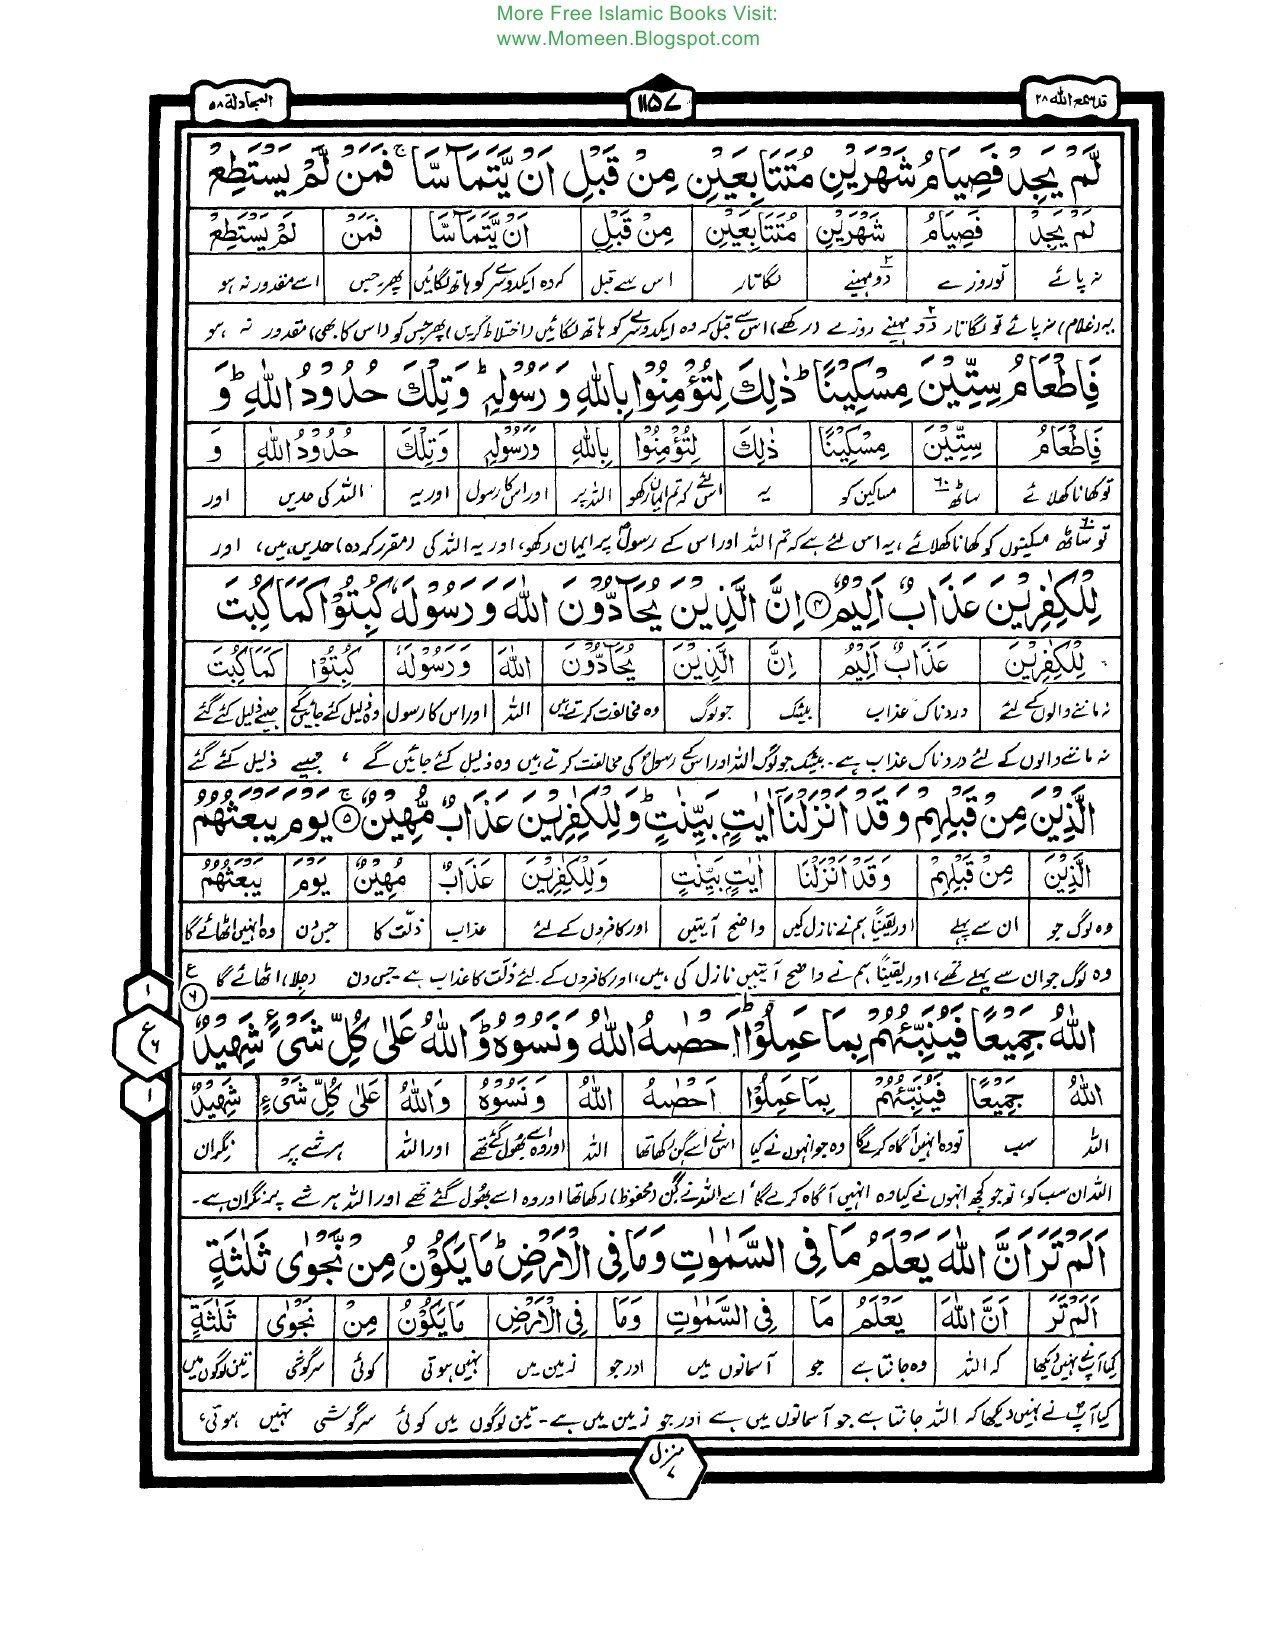 More Free Islamic Books Visit:
www.Momeen.Blogspot.com
قد سمع الله ٢٨
١١٥٧
المجادلة ٥٨
لَّمْ يَجِدْ فَصِيَامُ شَهْرَيْنِ مُتَتَابِعَيْنِ مِنْ قَبْلِ اَنْ يَّتَمَآسَّا ۚ فَمَنْ لَّمْ يَسْتَطِعْ
لَمْ يَجِدْ فَصِيَامُ شَهْرَيْنِ مُتَتَابِعَيْنِ مِنْ قَبْلِ اَنْ يَّتَمَآسَّا فَمَنْ لَمْ يَسْتَطِعْ
نہ پائے تو روزے دو ۲ مہینے لگاتار اس سے قبل کہ وہ ایکدوسرے کو ہاتھ لگائیں پھر جس اسے مقدور نہ ہو
یہ (غلام) نہ پائے تو لگاتار دو ۲ مہینے روزے (رکھے) اس سے قبل کہ وہ ایکدوسرے کو ہاتھ لگائیں (اختلاط کریں) پھر جس کو (اس کا بھی) مقدور نہ ہو
فَاِطْعَامُ سِتِّيْنَ مِسْكِيْنًا ؕ ذٰلِكَ لِتُؤْمِنُوْا بِاللّٰهِ وَ رَسُوْلِهٖ ؕ وَتِلْكَ حُدُوْدُ اللّٰهِ ؕ وَ
فَاِطْعَامُ سِتِّيْنَ مِسْكِيْنًا ذٰلِكَ لِتُؤْمِنُوْا بِاللّٰهِ وَرَسُوْلِهٖ وَتِلْكَ حُدُوْدُ اللّٰهِ وَ
تو کھانا کھلائے ساٹھ ۶۰ مساکین کو یہ اس لئے کہ تم ایمان رکھو اللہ پر اور اس کا رسول اور یہ اللہ کی حدیں اور
تو ساٹھ ۶۰ مسکینوں کو کھانا کھلائے، یہ اس لئے ہے کہ تم اللہ اور اس کے رسولؐ پر ایمان رکھو، اور یہ اللہ کی (مقرر کردہ) حدیں ہیں، اور
لِلْكٰفِرِيْنَ عَذَابٌ اَلِيْمٌ ﴿۴﴾ اِنَّ الَّذِيْنَ يُحَآدُّوْنَ اللّٰهَ وَ رَسُوْلَهٗ كُبِتُوْا كَمَا كُبِتَ
لِلْكٰفِرِيْنَ عَذَابٌ اَلِيْمٌ اِنَّ الَّذِيْنَ يُحَآدُّوْنَ اللّٰهَ وَرَسُوْلَهٗ كُبِتُوْا كَمَا كُبِتَ
نہ ماننے والوں کے لئے دردناک عذاب بیشک جو لوگ وہ مخالفت کرتے ہیں اللہ اور اس کا رسول وہ ذلیل کئے جائیں گے جیسے ذلیل کئے گئے
نہ ماننے والوں کے لئے دردناک عذاب ہے۔ بیشک جو لوگ اللہ اور اس کے رسولؐ کی مخالفت کرتے ہیں وہ ذلیل کئے جائیں گے، جیسے ذلیل کئے گئے
الَّذِيْنَ مِنْ قَبْلِهِمْ وَ قَدْ اَنْزَلْنَآ اٰيٰتٍۭ بَيِّنٰتٍ ؕ وَلِلْكٰفِرِيْنَ عَذَابٌ مُّهِيْنٌ ﴿۵﴾ ۚ يَوْمَ يَبْعَثُهُمُ
الَّذِيْنَ مِنْ قَبْلِهِمْ وَقَدْ اَنْزَلْنَا اٰيٰتٍ بَيِّنٰتٍ وَلِلْكٰفِرِيْنَ عَذَابٌ مُهِيْنٌ يَوْمَ يَبْعَثُهُمُ
وہ لوگ جو ان سے پہلے اور یقیناً ہم نے نازل کیں واضح آیتیں اور کافروں کے لئے عذاب ذلّت کا جس دن وہ انہیں اٹھائے گا
وہ لوگ جو ان سے پہلے تھے، اور یقیناً ہم نے واضح آیتیں نازل کی ہیں، اور کافروں کے لئے ذلّت کا عذاب ہے جس دن (جِلا) اٹھائے گا
اللّٰهُ جَمِيْعًا فَيُنَبِّئُهُمْ بِمَا عَمِلُوْا ؕ اَحْصٰىهُ اللّٰهُ وَ نَسُوْهُ ؕ وَاللّٰهُ عَلٰى كُلِّ شَىْءٍ شَهِيْدٌ ﴿۶﴾ ع
١
ع ٦
١
اللّٰهُ جَمِيْعًا فَيُنَبِّئُهُمْ بِمَا عَمِلُوْا اَحْصٰىهُ اللّٰهُ وَنَسُوْهُ وَاللّٰهُ عَلٰى كُلِّ شَىْءٍ شَهِيْدٌ
اللہ سب تو وہ انہیں آگاہ کرے گا وہ جو انہوں نے کیا اسے گن رکھا تھا اللہ اور وہ اسے بھول گئے تھے اور اللہ ہر شے پر نگران
اللہ ان سب کو، تو جو کچھ انہوں نے کیا وہ انہیں آگاہ کرے گا، اسے اللہ نے گن (محفوظ) رکھا تھا اور وہ اسے بھول گئے تھے اور اللہ ہر شے پر نگران ہے۔
اَلَمْ تَرَ اَنَّ اللّٰهَ يَعْلَمُ مَا فِى السَّمٰوٰتِ وَمَا فِى الْاَرْضِ ؕ مَا يَكُوْنُ مِنْ نَّجْوٰى ثَلٰثَةٍ
اَلَمْ تَرَ اَنَّ اللّٰهَ يَعْلَمُ مَا فِى السَّمٰوٰتِ وَمَا فِى الْاَرْضِ مَا يَكُوْنُ مِنْ نَجْوٰى ثَلٰثَةٍ
کیا آپ نے نہیں دیکھا کہ اللہ وہ جانتا ہے جو آسمانوں میں اور جو زمین میں نہیں ہوتی کوئی سرگوشی تین لوگوں میں
کیا آپؐ نے نہیں دیکھا کہ اللہ جانتا ہے جو آسمانوں میں ہے اور جو زمین میں ہے۔ تین لوگوں میں کوئی سرگوشی نہیں ہوتی،
منزل ٧